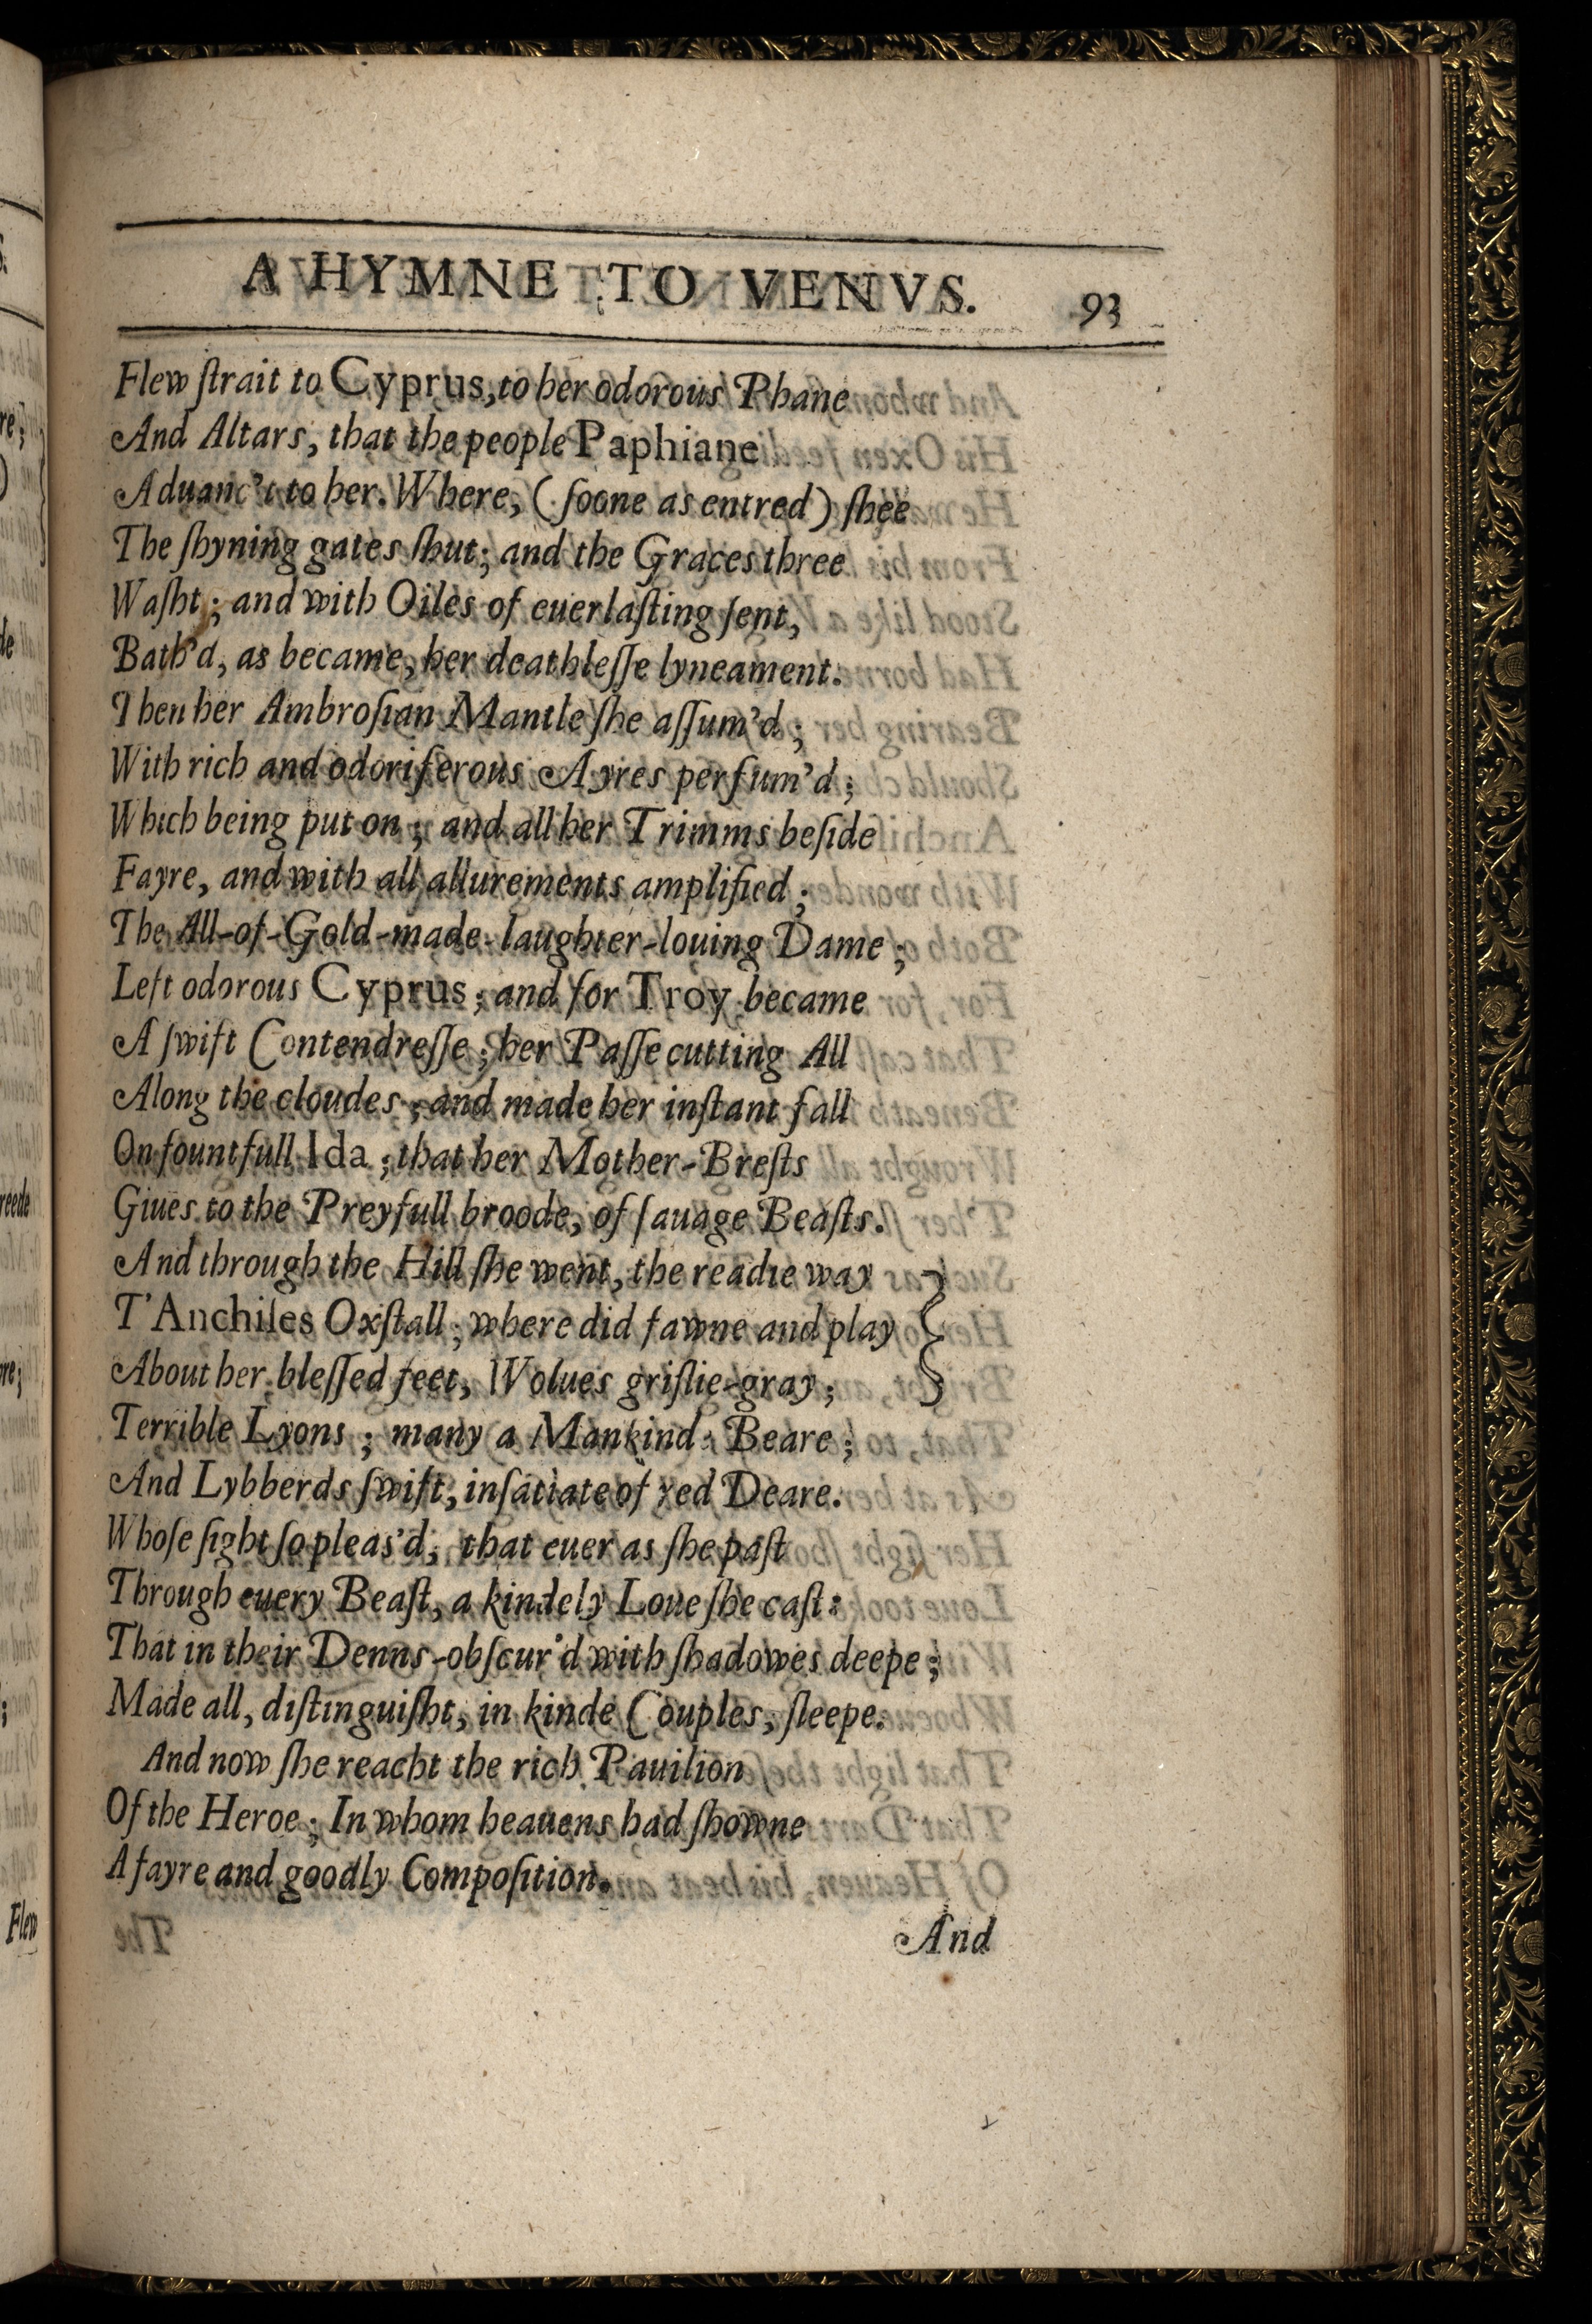 A HYMNE TO VENVS. 93
Flew ſtrait to Cyprus, to her odorous Phane
And Altars, that the people Paphiane
Aduanc't to her. Where, (ſoone as entred) ſhee
The ſhyning gates ſhut; and the Graces three
Waſht; and with Oiles of euerlaſting ſent,
Bath'd, as became, her deathleſſe lyneament.
Then her Ambroſian Mantle ſhe aſſum'd;
With rich and odoriferous Ayres perfum'd;
Which being put on; and all her Trimms beſide
Fayre, and with all allurements amplified;
The All-of-Gold-made-laughter-louing Dame;
Left odorous Cyprus; and for Troy became
A ſwift Contendreſſe; her Paſſe cutting All
Along the cloudes; and made her inſtant fall
On fountfull Ida; that her Mother-Breſts
Giues to the Preyfull broode, of ſauage Beaſts.
And through the Hill ſhe went, the readie way
T'Anchiſes Oxſtall; where did fawne and play
About her bleſſed feet, Wolues griſlie-gray;
Terrible Lyons; many a Mankind Beare;
And Lybberds ſwift, inſatiate of red Deare.
Whoſe ſight ſo pleas'd; that euer as ſhe paſt
Through euery Beaſt, a kindely Loue ſhe caſt:
That in their Denns-obſcur'd with ſhadowes deepe;
Made all, diſtinguiſht, in kinde Couples, ſleepe.
And now ſhe reacht the rich Pauilion
Of the Heroe; In whom heauens had ſhowne
A fayre and goodly Compoſition.
And